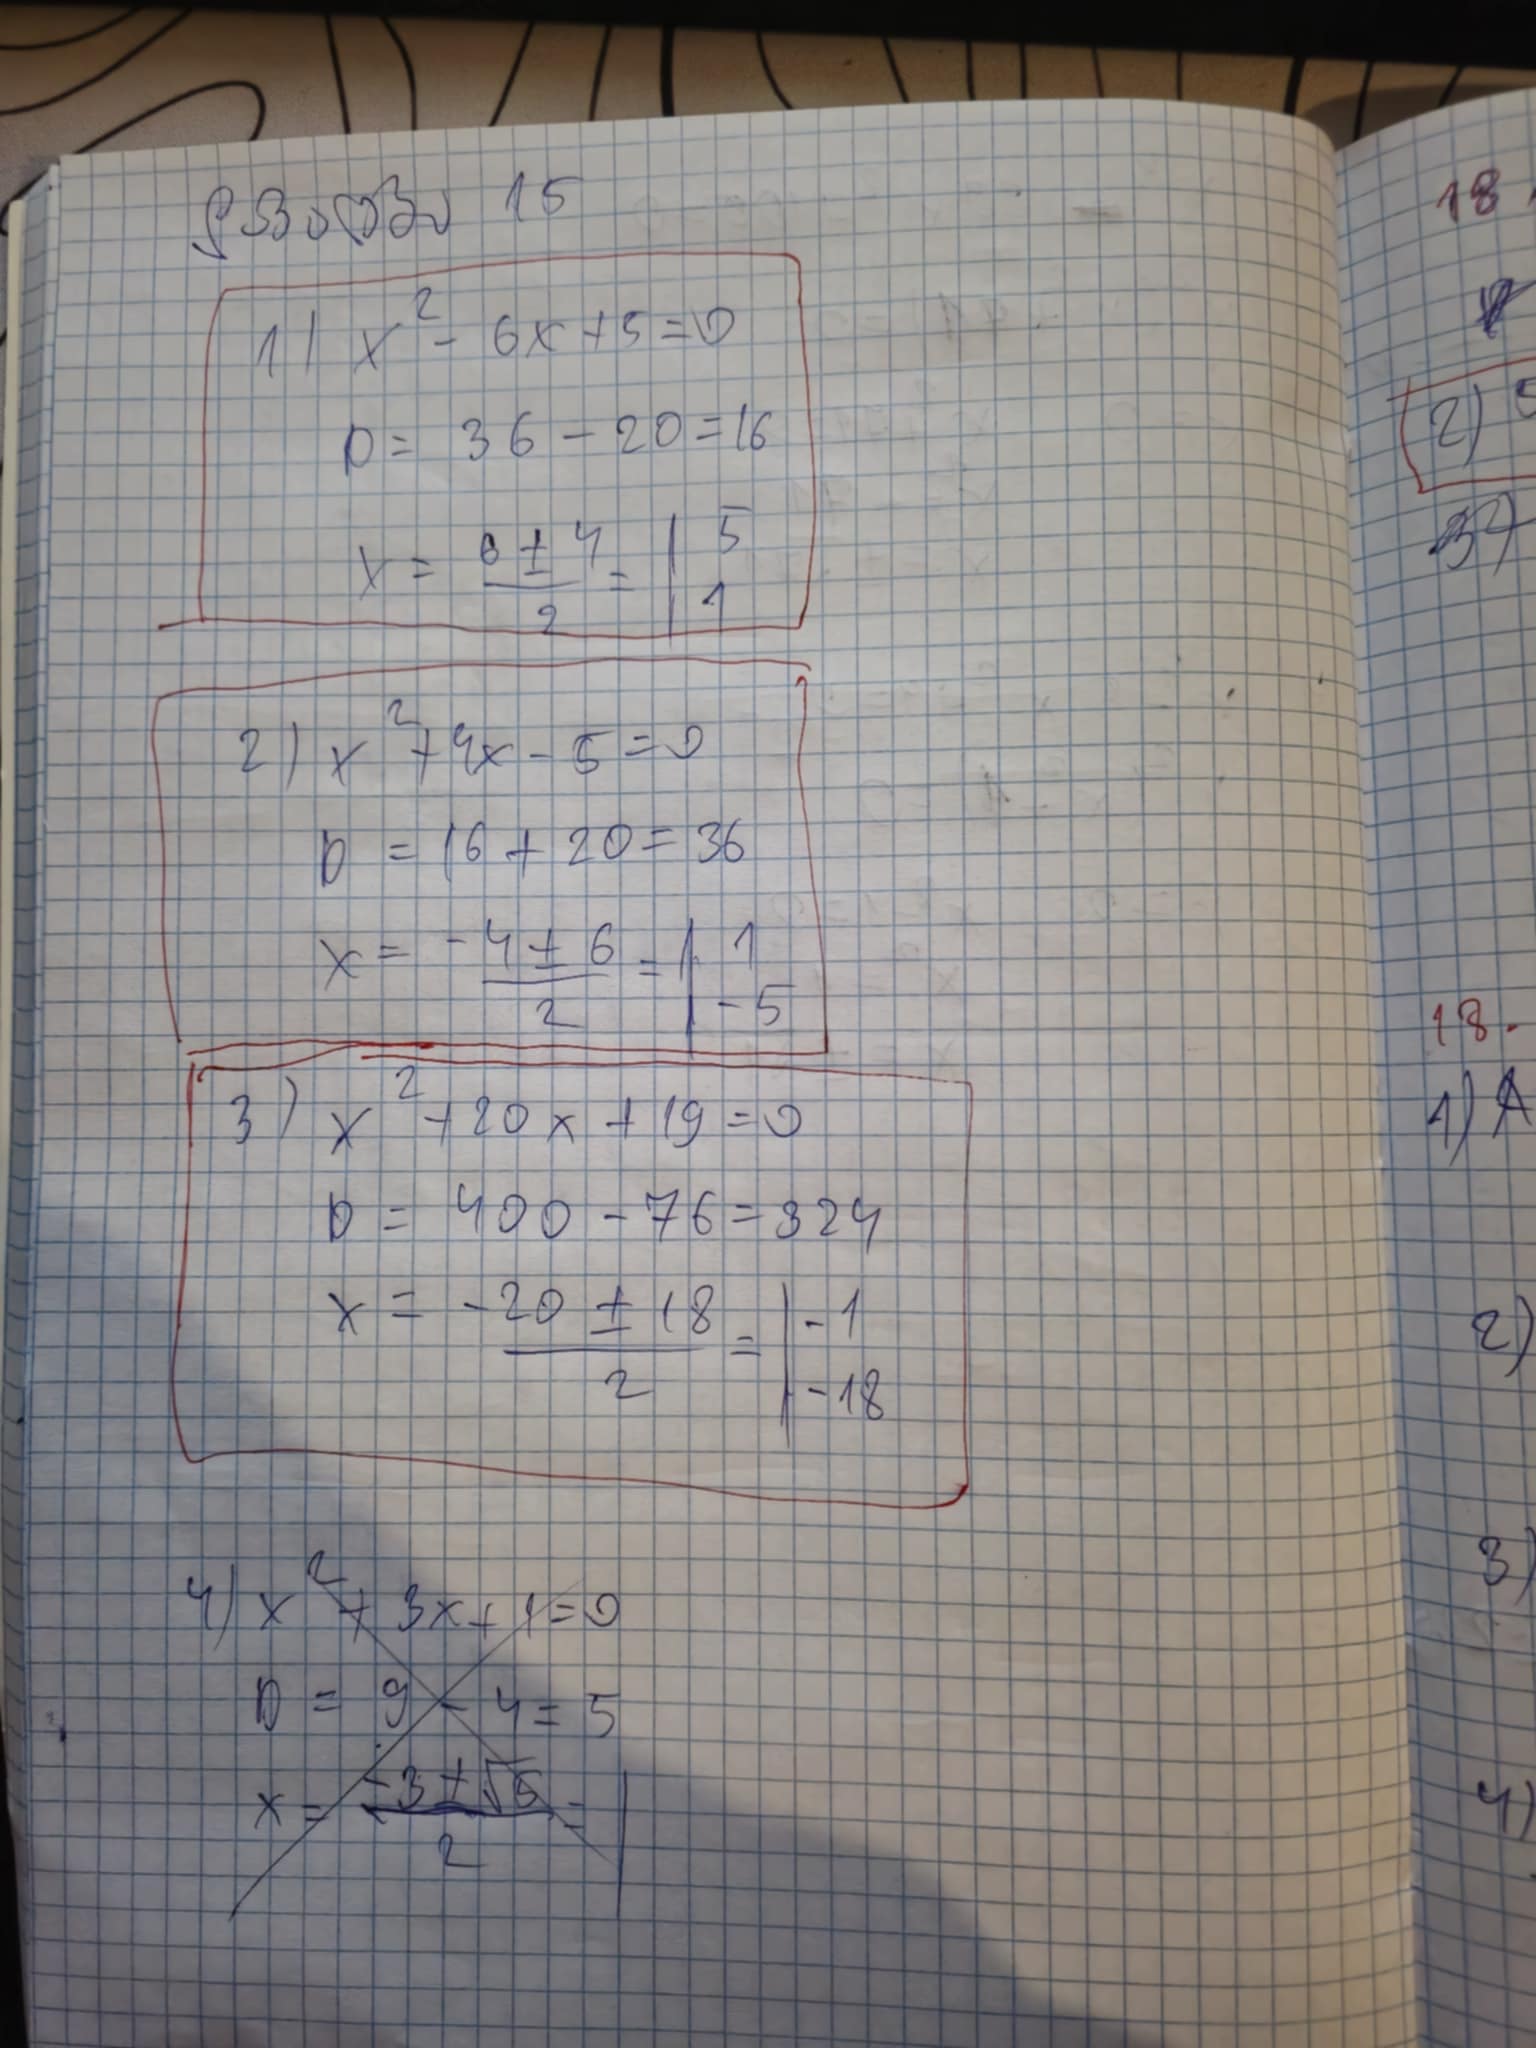 15
1) x² - 6x + 5 = 0
D = 36 - 20 = 16
x = (6 ± 4)/2 = | 5
1
2) x² + 4x - 5 = 0
D = 16 + 20 = 36
x = (-4 ± 6)/2 = | 1
-5
3) x² + 20x + 19 = 0
D = 400 - 76 = 324
x = (-20 ± 18)/2 = | -1
-18
4) x² + 3x + 1 = 0
D = 9 - 4 = 5
x = (-3 ± √5)/2 = |
18
2) 5
3)
18.
1) A
2)
3)
4)